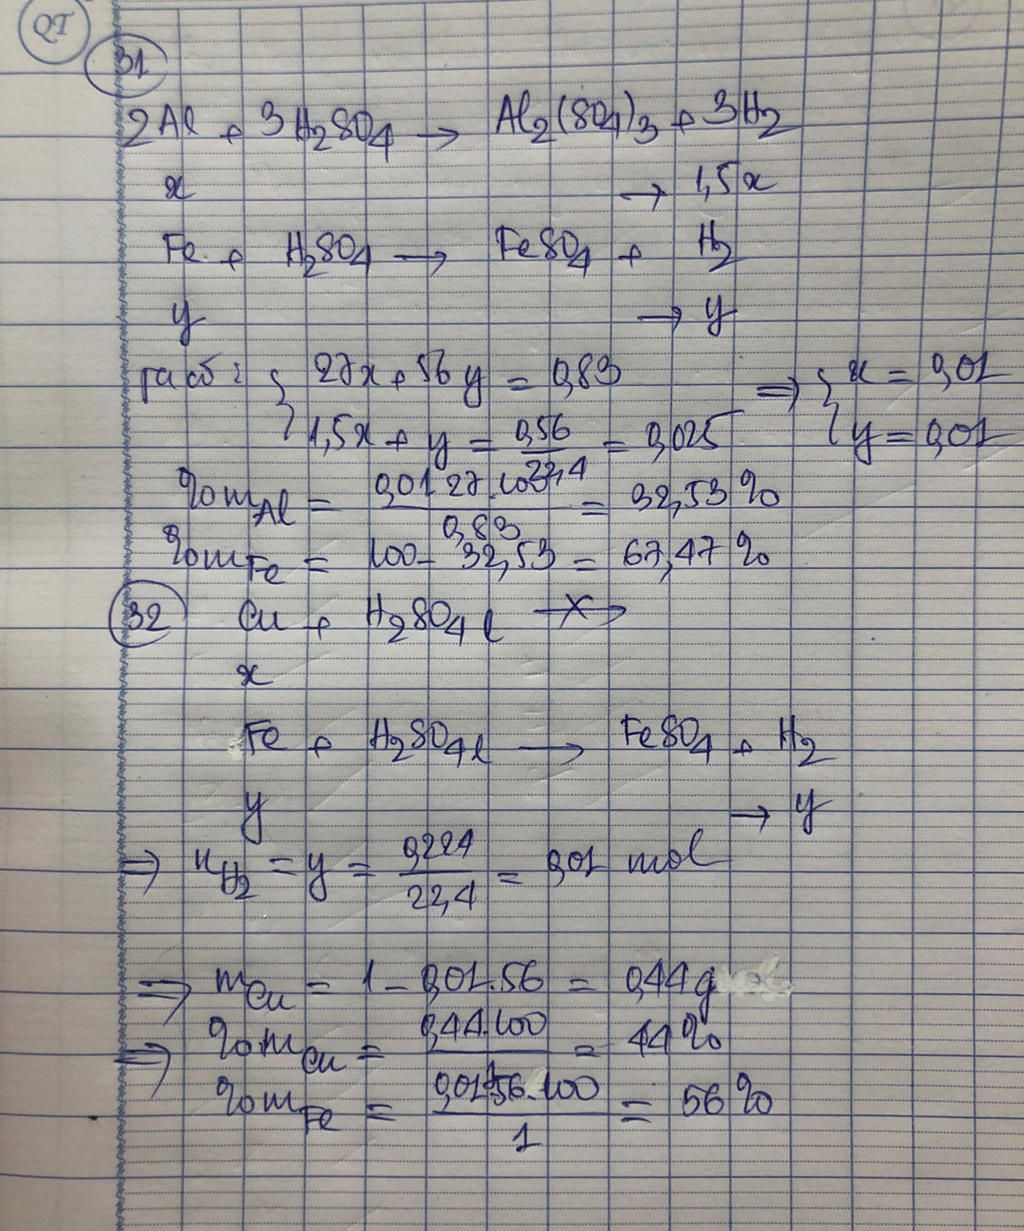 QT
31
2Al + 3H₂SO₄ → Al₂(SO₄)₃ + 3H₂
x → 1,5x
Fe + H₂SO₄ → FeSO₄ + H₂
y → y
{ 27x + 56y = 0,83
1,5x + y = 0,56/22,4 = 0,025 ⟹ { x = 0,01
y = 0,01
%mAl = 0,01.27.100/0,83 = 32,53%
%mFe = 100 - 32,53 = 67,47%
32 Cu + H₂SO₄ l -X->
x
Fe + H₂SO₄ l → FeSO₄ + H₂
y → y
⟹ nH₂ = y = 0,224/22,4 = 0,01 mol
⟹ mCu = 1 - 0,01.56 = 0,44g
⟹ %mCu = 0,44.100/1 = 44%
%mFe = 0,01.56.100/1 = 56%